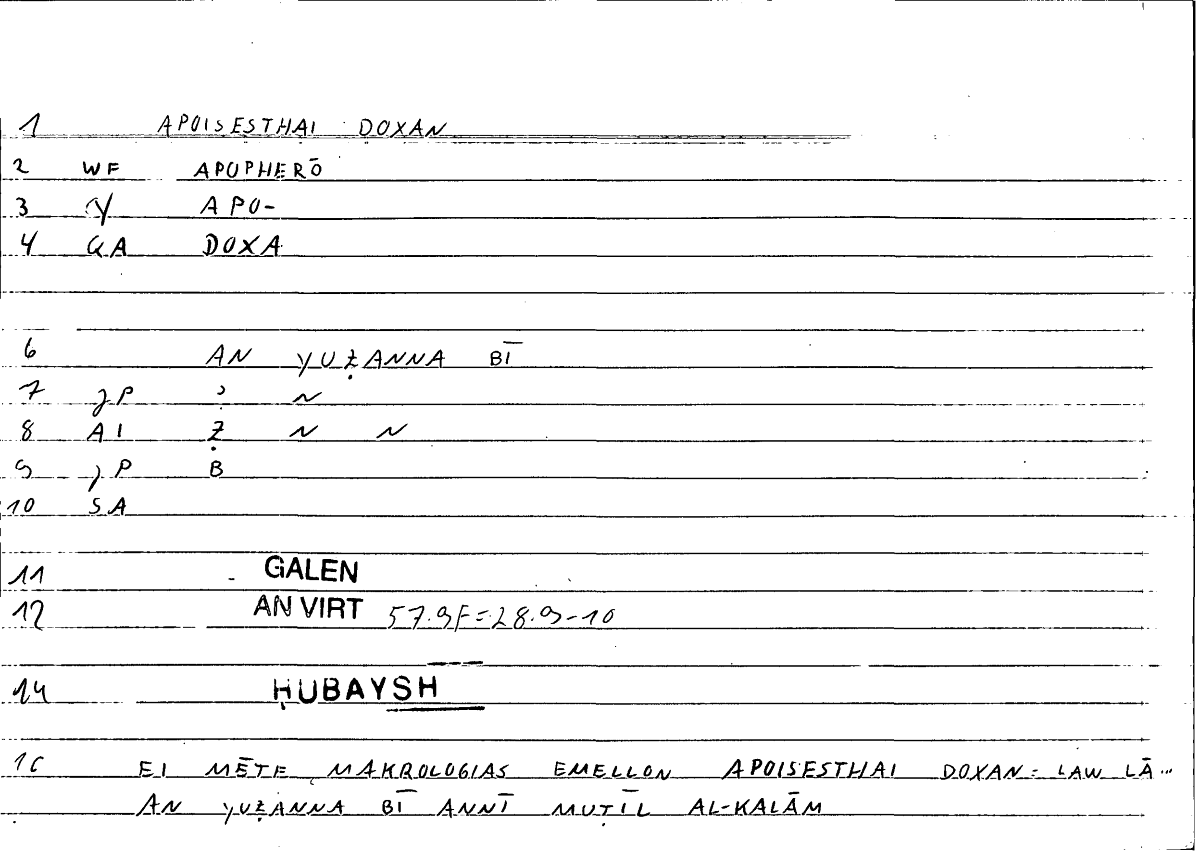 1 APOISESTHAI DOXAN
2 WF APOPHERŌ
3 APO-
4 GA DOXA
6 AN YUẒANNA BĪ
7 JP ʾ N
8 AI Ẓ N N
9 JP B
10 SA
11 GALEN
12 AN VIRT 57.9F=28.9-10
14 ḤUBAYSH
16 EI MĒTE MAKROLOGIAS EMELLON APOISESTHAI DOXAN = LAW LĀ...
AN YUẒANNA BĪ ANNĪ MUṬĪL AL-KALĀM